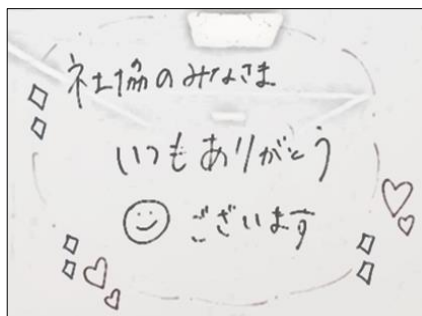 社協のみなさま
いつもありがとう
ございます